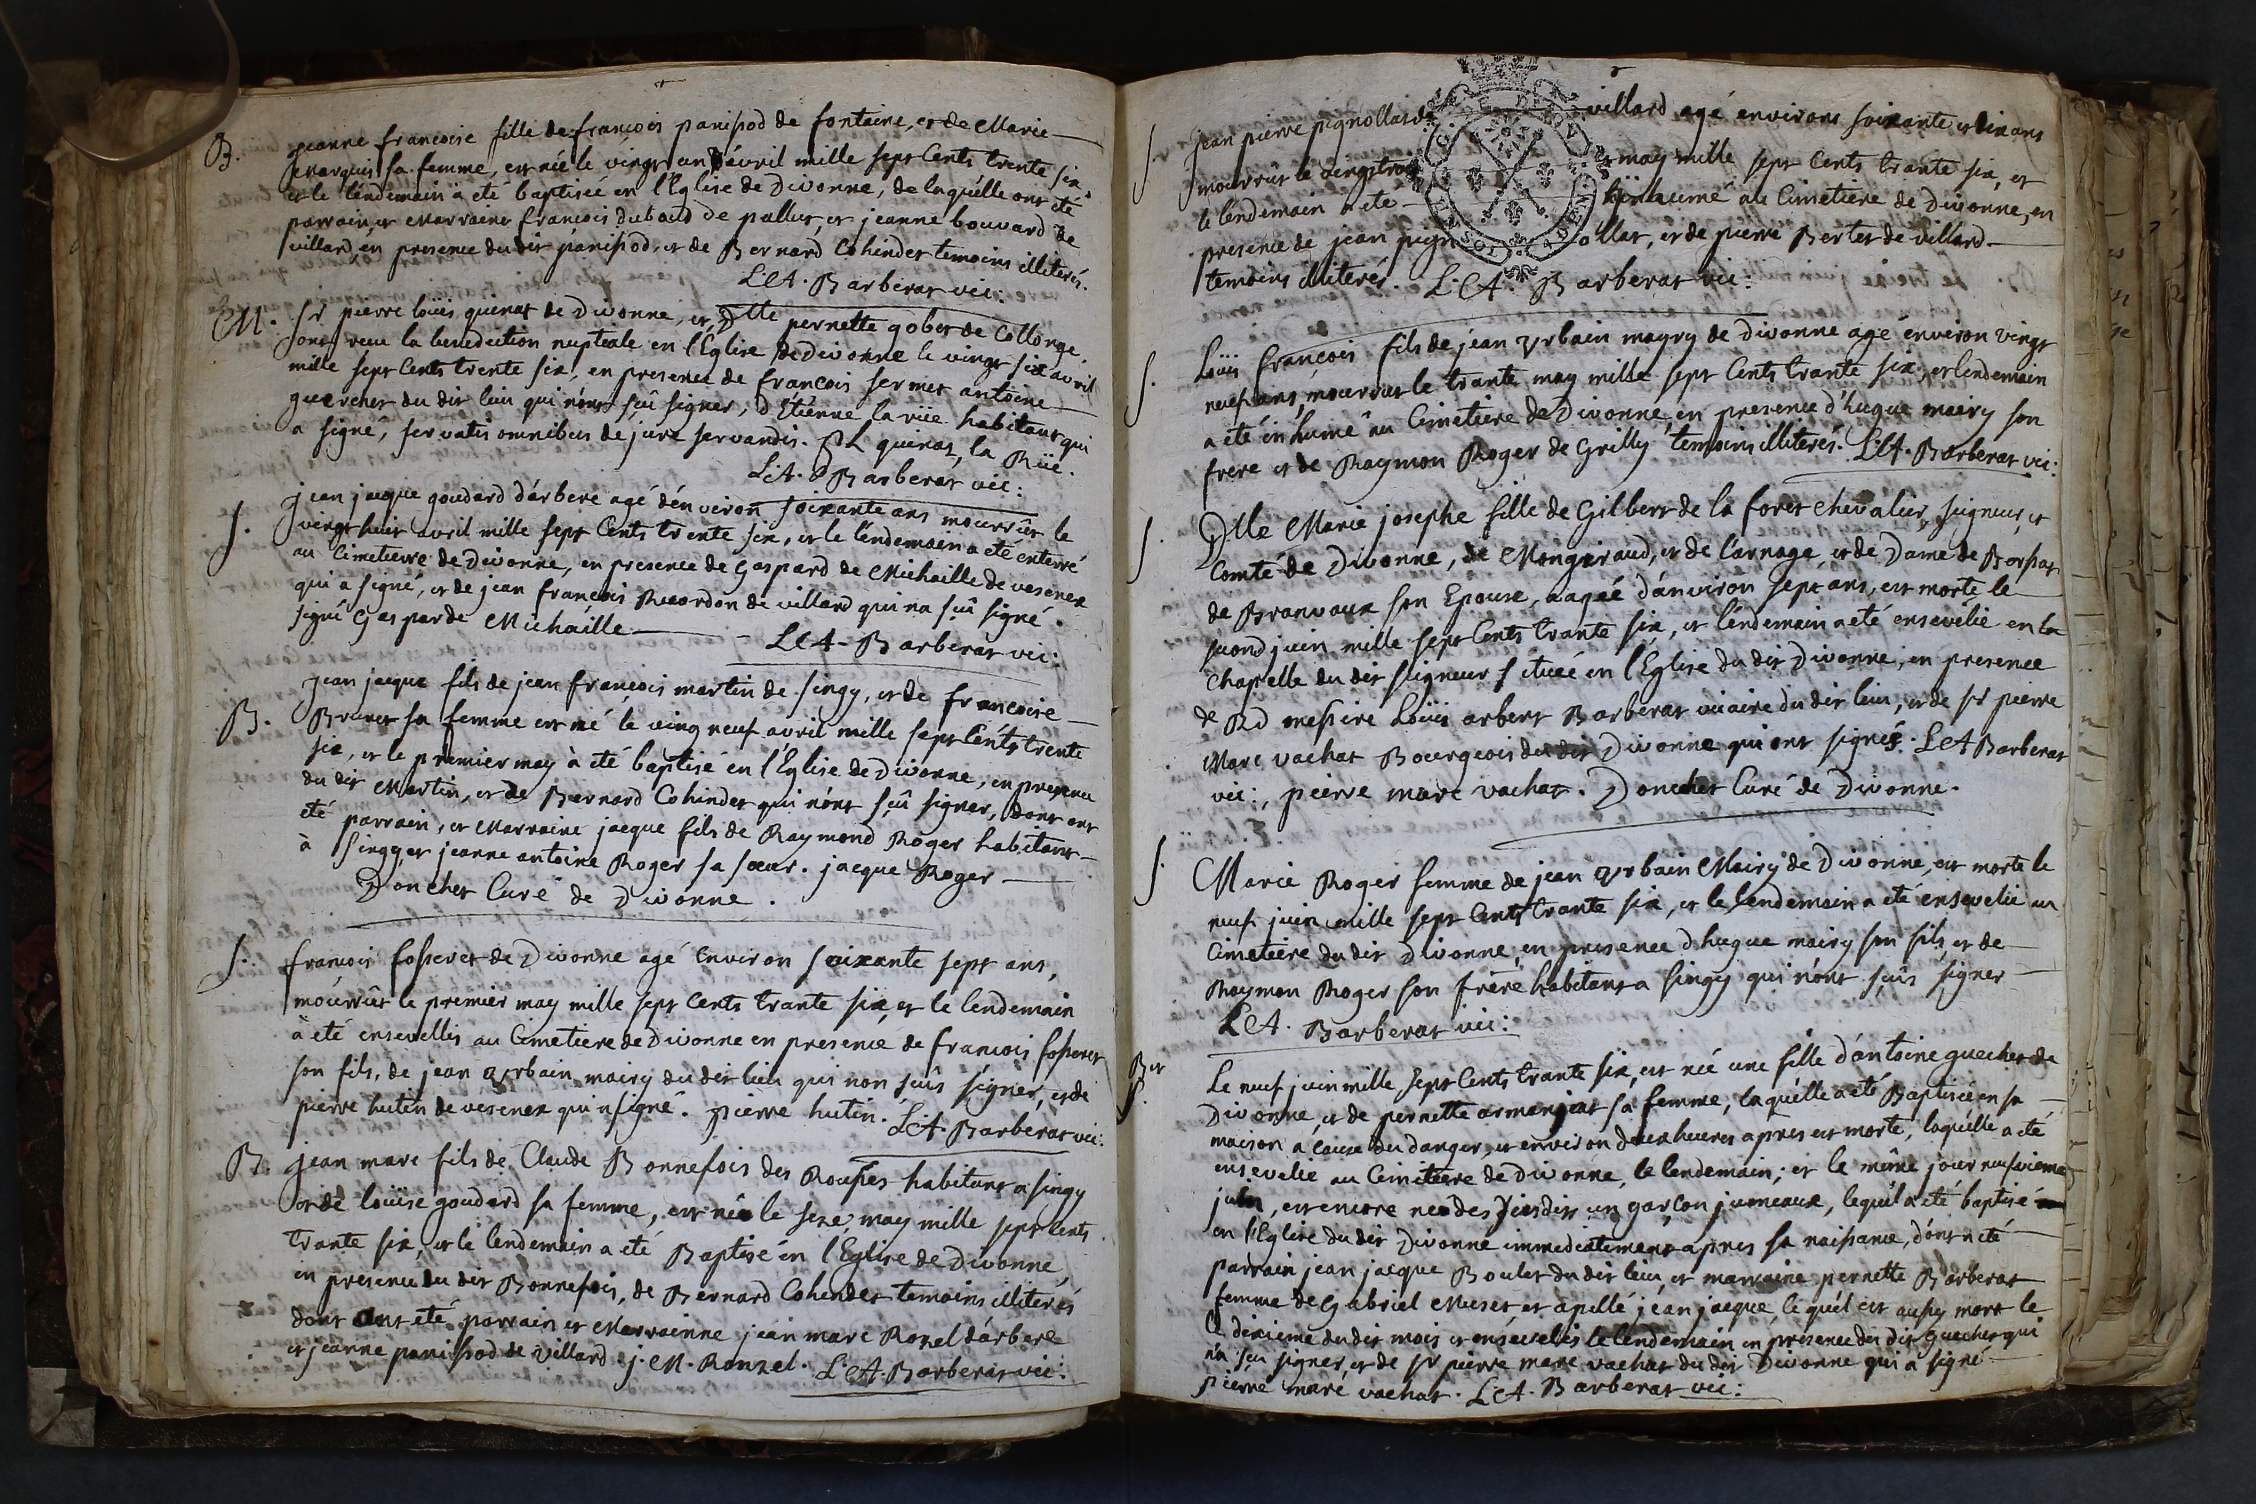 B. jeanne francoise fille de francois panissod de fontaine, et de Marie
marquis sa femme, est née le vingt un d'avril mille sept Cents trente six
et le léndemain à eté baptisée en l'Eglise de Divonne, de laquélle ont eté
parrain, et Marraine francois dubout de pallut, et jeanne bouvard de
villard, en presence du dit panissod, et de Bernard Cohindet temoins illiterés.
L.A. Barberat vic:
M. sr pierre loüis quinat de Divonne, et Dlle pernette gobet de Collonge
sont receu la benediction nuptiale en l'Eglise de Divonne le vingt six avril
mille sept Cents trente six, en presence de francois fermet antoine
guerchet du dit lieu qui n'ont sçû signer, d'Etienne la rüe habitant qui
a signé, servatis omnibus de jure servandis. P L quinat, la Rüe.
L.A. Barberat vic:
S. jean jacque goudard d'arbere agé d'énviron soixante ans mourrût le
vingt huit avril mille sept Cents trente six, et le lendemain a eté enterré
au Cimetierre de Divonne, en presence de Gaspard de Michaille de vesenex
qui a signé, et de jean francois Recordon de villard qui na sçû signé.
signé Gaspar de Michaille L.A. Barberat vic:
B. jean jacque fils de jean francois martin de singy, et de francoise
Brunet sa femme est né le vingt neuf avril mille sept Cents trente
six, et le premier may à eté baptisé en l'Eglise de Divonne, en presence
du dit Martin, et de Bernard Cohindet qui n'ont sçû signer, dont ont
eté parrain, et Marraine jacque fils de Raymond Roger habitant
à singy, et jeanne antoine Roger sa sœur. jacque Roger
Donchet Curé de Divonne.
S. francois fosseret de Divonne agé environ soixante sept ans,
mourrût le premier may mille sept Cents trante six, et le lendemain
à eté ensevellis au Cimetiere de Divonne en presence de francois fosseret
son fils, de jean Urbain mairy du dit lieu qui non sçûs signer, et de
pierre hutin de vesenex qui a signé. pierre hutin. L.A. Barberat vic:
B. jean marc fils de Claude Bonnefois des Rousses habitant a singy
et de loüise goudard sa femme, est né le seze may mille sept Cents
trante six, et le lendemain a eté Baptisé én l'Eglise de Divonne,
en presence du dit Bonnefois, de Bernard Cohendet temoins illiterés
dont ont eté parrain et Marrainne jean marc Ronzel d'arbere
et jeanne panissod de villard. j. M. Ronzel. L.A. Barberat vic:
S. jean pierre pignollat de villard agé environs soixante et dix ans
mourrût le vingt trois may mille sept Cents trante six, et
le léndemain a eté inhumé au Cimetiere de Divonne, en
presence de jean pignollat, et de pierre Bertet de villard
temoins illiterés. L.A. Barberat vic:
S. Loüis François fils de jean Urbain mayry de Divonne agé environ vingt
neuf ans, mourrut le trante may mille sept Cents trante six, et lendemain
a eté inhumê au Cimetiere de Divonne, en presence d'hugue mairy son
frere et de Raymon Roger de Grilly temoins illiterés. L.A. Barberat vic:
S. Dlle Marie josephe fille de Gilbert de la foret Chevalier, seigneur, et
Comté de Divonne, de Mongiraud, et de l'arnage, et de Dame de
de Branvaux son Epouse, aagée d'anviron sept ans, est morte le
second juin mille sept Cents trante six, et léndemain a eté ensevélie en la
Chapelle du dit seigneur située en l'Eglise du dit Divonne, en presence
de Rd messire Loüis arbert Barberat vicaire du dit lieu, et de sr pierre
Marc vachat Bourgeois du dit Divonne qui ont signés. L.A Barberat
vic:, pierre marc vachat. Donchet Curé de Divonne.
S. Marie Roger femme de jean Urbain Mairy de Divonne, est morte le
neuf juin mille sept Cents trante six, et le lendemain a eté ensevelie au
Cimetiere du dit Divonne, en presence d'hugue mairy son fils, et de
Raymon Roger son frère habitant a singy qui n'ont sçûs signer
L.A. Barberat vic:
B et S. Le neuf juin mille sept Cents trante six, est née une fille d'antoine guerchet de
Divonne, et de pernette armanjat sa femme, laquélle a eté Baptisée en sa
maison a cause du danger, et environ deux heures apres est morte, laquélle a eté
ensevelie au Cimetiere de Divonne, le lendemain; et le même jour neufvieme
juin, est encore né des dits un garçon jumeaux, lequ'el a eté baptisé
en l'Eglise du dit Divonne immediatement apres sa naissance, dont a eté
parrain jean jacque Boulet du dit lieu, et marraine pernette Barberat
femme de Gabriel Muset, et apellé jean jacque, lequél est aussy mort le
dixieme du dit mois et ensevelis le lendemain en presence du dit Guerchet qui
n'a sçu signer et de sr pierre marc vachat du dit Divonne qui a signé
pierre marc vachat. L.A. Barberat vic: